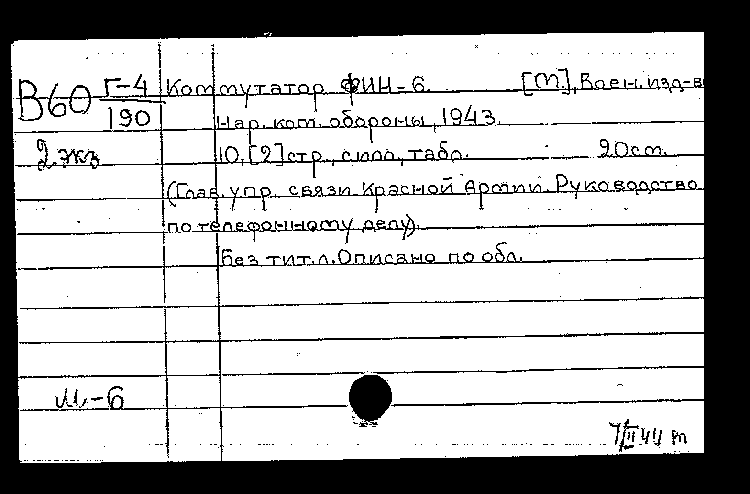 В60 Г-4/190 Коммутатор ФИН-6. [М], Воен. изд-в
Нар. ком. обороны, 1943.
2 экз 10, [2] стр., силл., табл. 20 см.
(Глав. упр. связи Красной Армии. Руководство
по телефонному делу).
Без тит. л. Описано по обл.
М-6
7/II 44 m